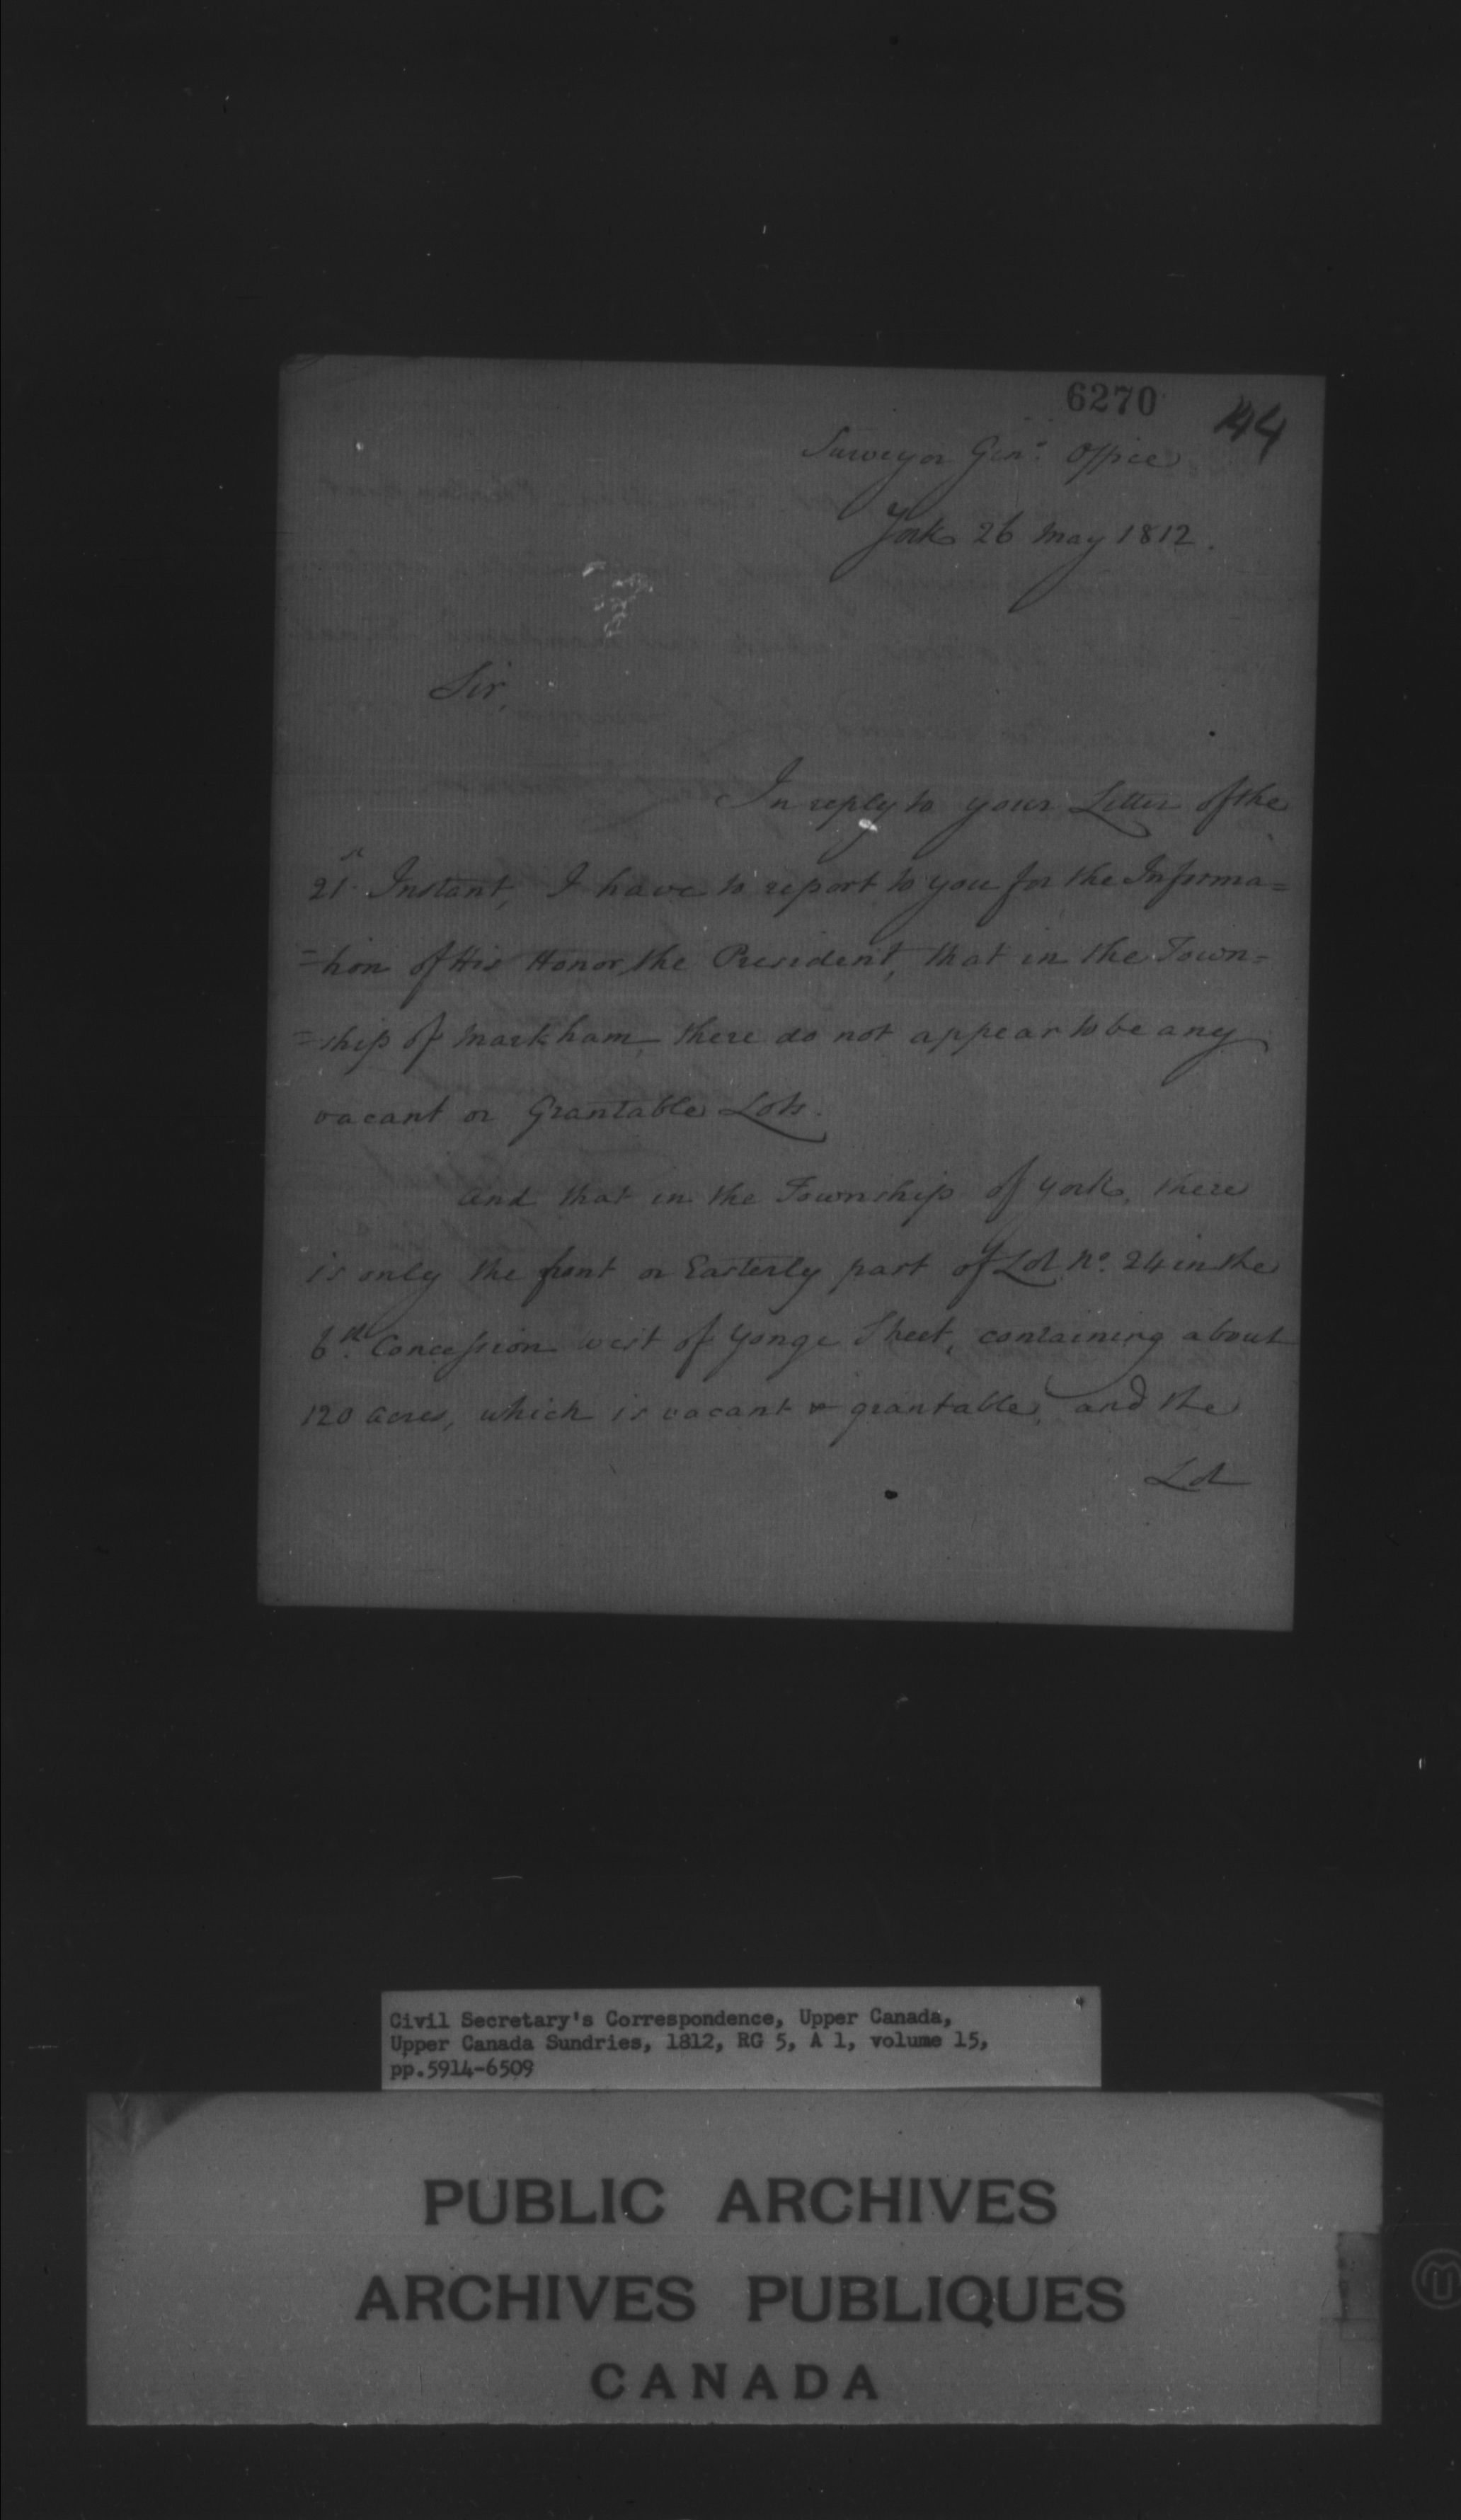 6270
144
Surveyor Gen.s Office
York 26 May 1812.
Sir,
In reply to your Letter of the
21st Instant, I have to report to you for the Informa=
=tion of His Honor, the President, that in the Town=
=ship of Markham there do not appear to be any
vacant or Grantable Lots.
and that in the Township of York, there
is only the front or Easterly part of Lot No. 24 in the
6th Concession west of Yonge Street, containing about
120 acres, which is vacant & grantable, and the
Lot
Civil Secretary's Correspondence, Upper Canada,
Upper Canada Sundries, 1812, RG 5, A 1, volume 15,
pp.5914-6509
PUBLIC ARCHIVES
ARCHIVES PUBLIQUES
CANADA